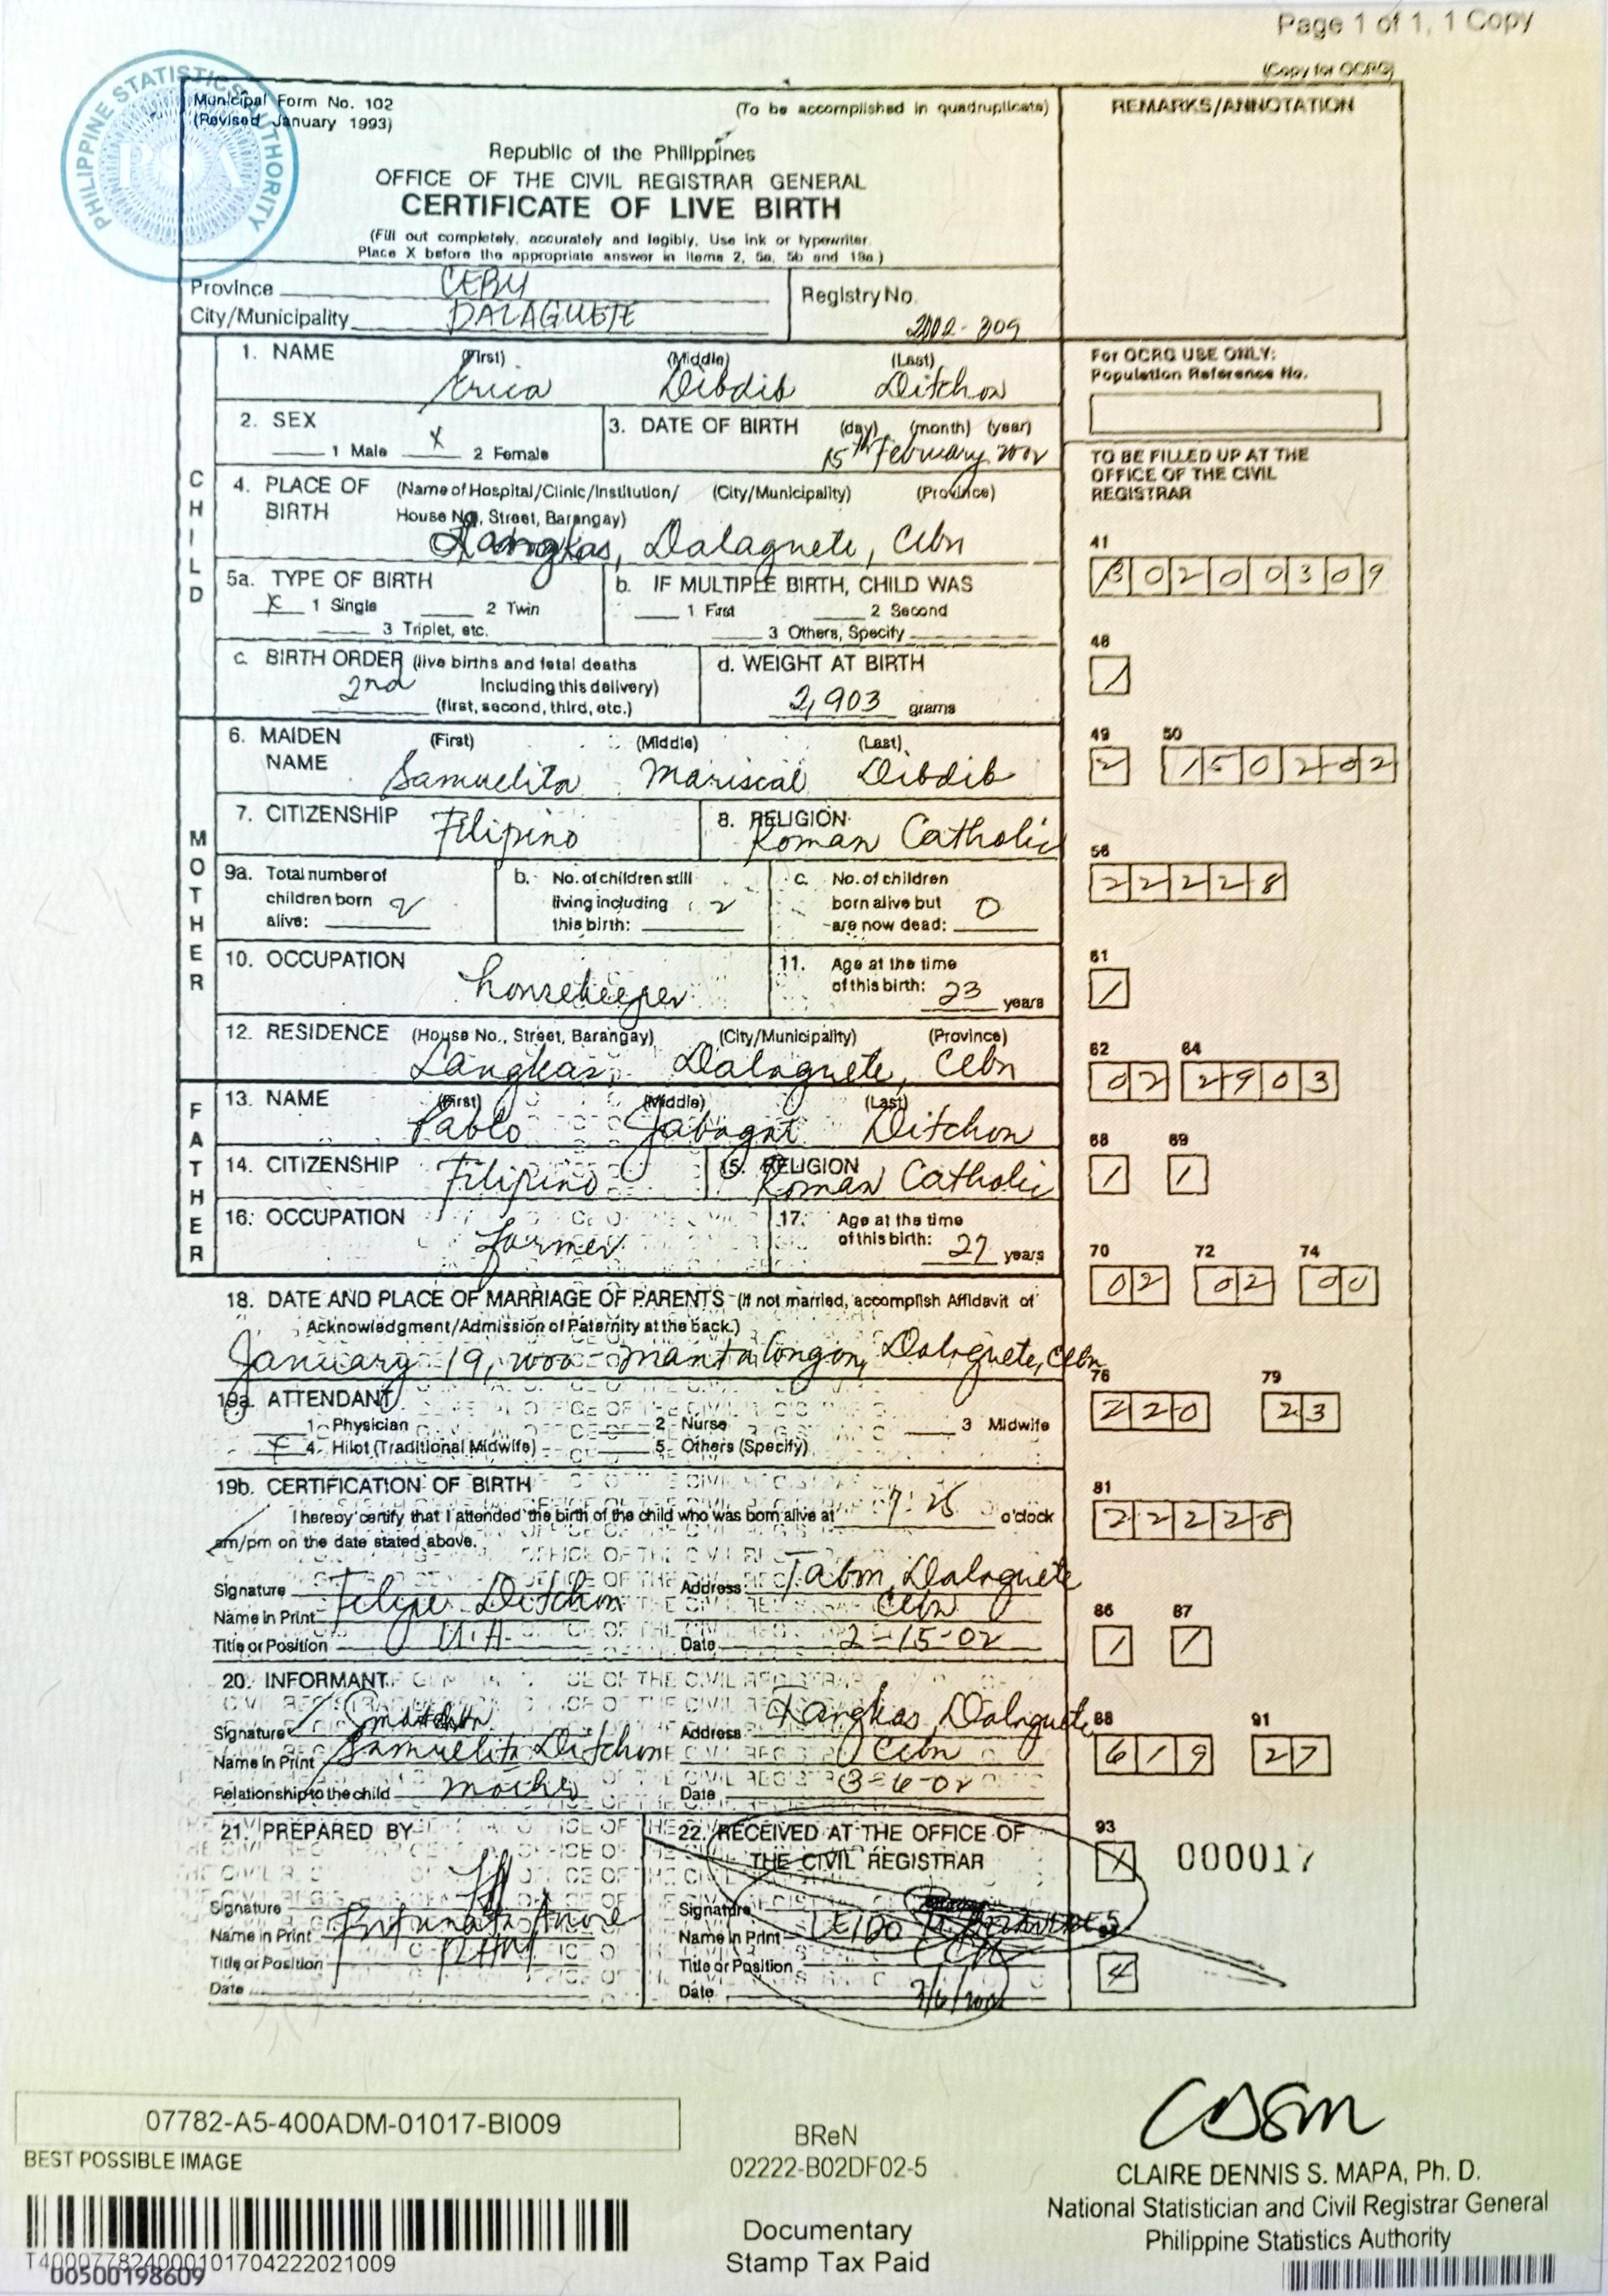 Page 1 of 1, 1 Copy
(Copy for OCRG)
PHILIPPINE STATISTICS AUTHORITY
PSA
Municipal Form No. 102
(Revised January 1993)
(To be accomplished in quadruplicate)
REMARKS/ANNOTATION
Republic of the Philippines
OFFICE OF THE CIVIL REGISTRAR GENERAL
CERTIFICATE OF LIVE BIRTH
(Fill out completely, accurately and legibly, Use ink or typewriter.
Place X before the appropriate answer in Items 2, 5a, 5b and 19a.)
Province CEBU
City/Municipality DALAGUETE
Registry No. 2002-309
1. NAME (First) (Middle) (Last)
Erica Dibdib Ditchon
For OCRG USE ONLY:
Population Reference No.
2. SEX
1 Male X 2 Female
3. DATE OF BIRTH (day) (month) (year)
15th February 2002
TO BE FILLED UP AT THE
OFFICE OF THE CIVIL
REGISTRAR
CHILD
4. PLACE OF BIRTH (Name of Hospital/Clinic/Institution/ (City/Municipality) (Province)
House No., Street, Barangay)
Langkas, Dalaguete, Cebu
41
B0200309
5a. TYPE OF BIRTH
X 1 Single 2 Twin
3 Triplet, etc.
b. IF MULTIPLE BIRTH, CHILD WAS
1 First 2 Second
3 Others, Specify
48
1
c. BIRTH ORDER (live births and fetal deaths
2nd including this delivery)
(first, second, third, etc.)
d. WEIGHT AT BIRTH
2,903 grams
MOTHER
6. MAIDEN NAME (First) (Middle) (Last)
Samuelita Mariscal Dibdib
49 50
2 150202
7. CITIZENSHIP Filipino
8. RELIGION Roman Catholic
56
22228
9a. Total number of
children born 2
alive:
b. No. of children still
living including 2
this birth:
c. No. of children
born alive but 0
are now dead:
10. OCCUPATION housekeeper
11. Age at the time
of this birth: 23 years
61
1
12. RESIDENCE (House No., Street, Barangay) (City/Municipality) (Province)
Langkas, Dalaguete, Cebu
62 64
02 2903
FATHER
13. NAME (First) (Middle) (Last)
Pablo Jabagat Ditchon
14. CITIZENSHIP Filipino
15. RELIGION Roman Catholic
68 69
1 1
16. OCCUPATION farmer
17. Age at the time
of this birth: 27 years
70 72 74
02 02 00
18. DATE AND PLACE OF MARRIAGE OF PARENTS (If not married, accomplish Affidavit of
Acknowledgment/Admission of Paternity at the back.)
January 19, 2000 - Mantalongon, Dalaguete, Cebu
76 79
220 23
19a. ATTENDANT
1 Physician 2 Nurse 3 Midwife
X 4 Hilot (Traditional Midwife) 5 Others (Specify)
19b. CERTIFICATION OF BIRTH
I hereby certify that I attended the birth of the child who was born alive at 7:25 o'clock
am/pm on the date stated above.
81
22228
Signature
Name in Print Felipe Ditchon
Title or Position
Address Tabon, Dalaguete
Cebu
Date 2-15-02
86 87
1 1
20. INFORMANT
Signature
Name in Print Samuelita Ditchon
Relationship to the child mother
Address Langkas, Dalaguete
Cebu
Date 3-6-02
88 91
619 27
21. PREPARED BY
Signature
Name in Print
Title or Position
Date
22. RECEIVED AT THE OFFICE OF
THE CIVIL REGISTRAR
Signature
Name in Print
Title or Position
Date
93
000017
4
07782-A5-400ADM-01017-BI009
BEST POSSIBLE IMAGE
T400077824000101704222021009
00500198609
BReN
02222-B02DF02-5
Documentary
Stamp Tax Paid
CLAIRE DENNIS S. MAPA, Ph. D.
National Statistician and Civil Registrar General
Philippine Statistics Authority